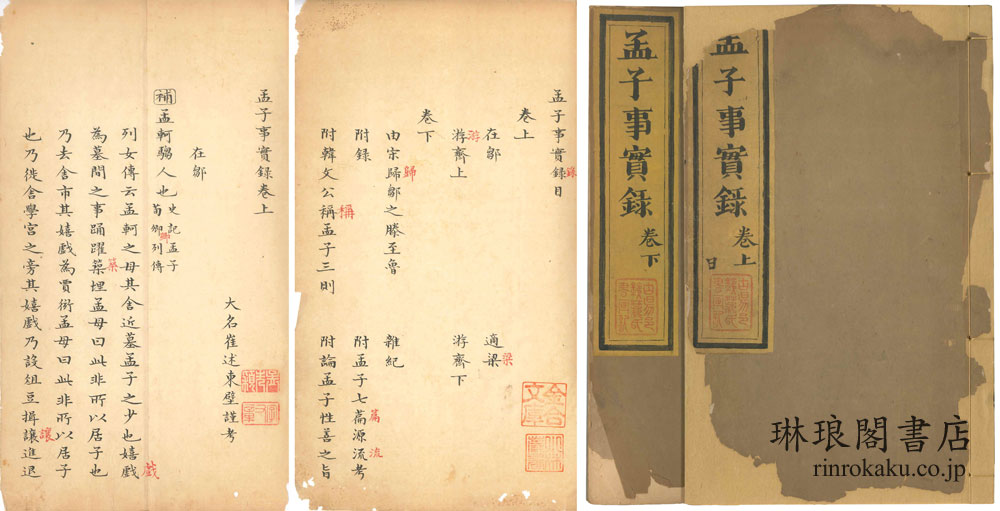 孟子事實錄卷上
大名崔述東壁謹考
在鄒
補孟軻騶人也史記孟子荀卿列傳
卿
列女傳云孟軻之母其舍近墓孟子之少也嬉戲
戲
為墓間之事踊躍築埋孟母曰此非所以居子也
築
乃去舍市其嬉戲為賈衒孟母曰此非所以居子
也乃徙舍學宮之旁其嬉戲乃設俎豆揖讓進退
讓
孟子事實錄目
錄
卷上
在鄒
適梁
梁
游齊上
游
游齊下
卷下
由宋歸鄒之滕至魯
歸
雜紀
附錄
附孟子七篇源流考
篇
流
附韓文公稱孟子三則
稱
附論孟子性善之旨
孟子事實錄
卷下
孟子事實錄
卷上
目
琳琅閣書店
rinrokaku.co.jp